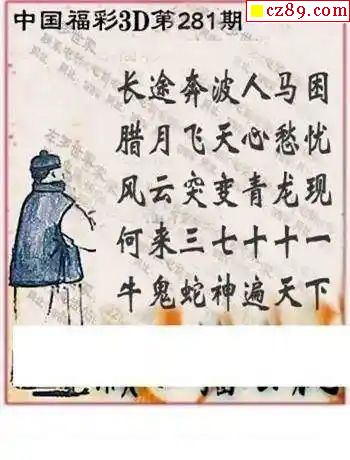 cz89.com
中国福彩3D第281期
长途奔波人马困
腊月飞天心愁忧
风云突变青龙现
何来三七十十一
牛鬼蛇神遍天下